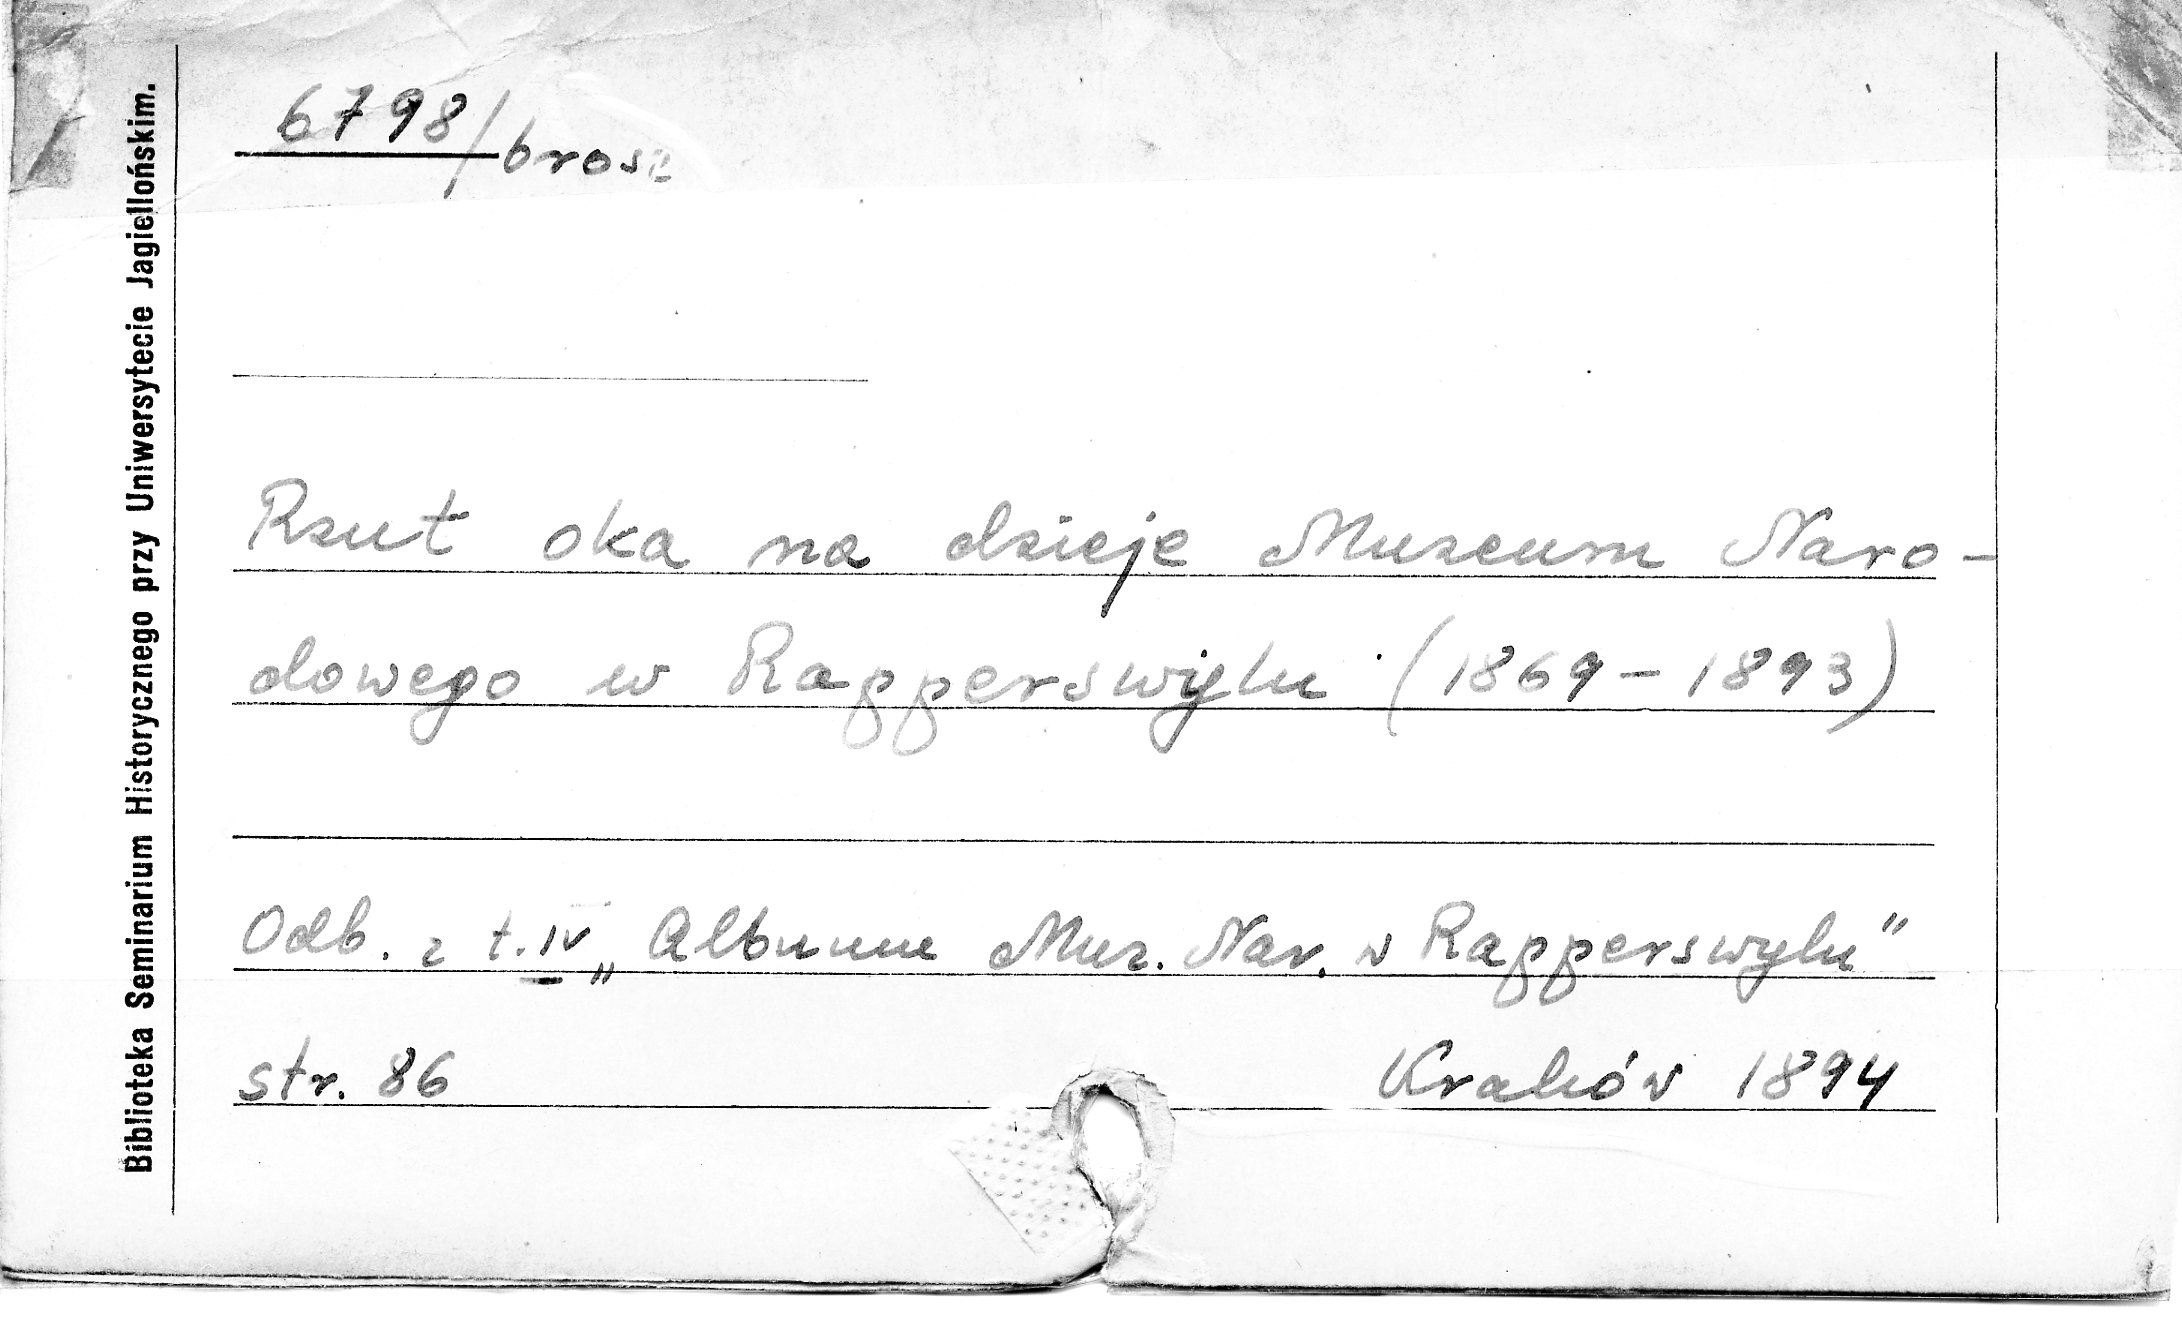 6798/brosz
Rzut oka na dzieje Muzeum Naro-
dowego w Rapperswylu (1869-1893)
Odb. z t. IV „Albumu Muz. Nar. w Rapperswylu"
str. 86 Kraków 1894
Biblioteka Seminarium Historycznego przy Uniwersytecie Jagiellońskim.